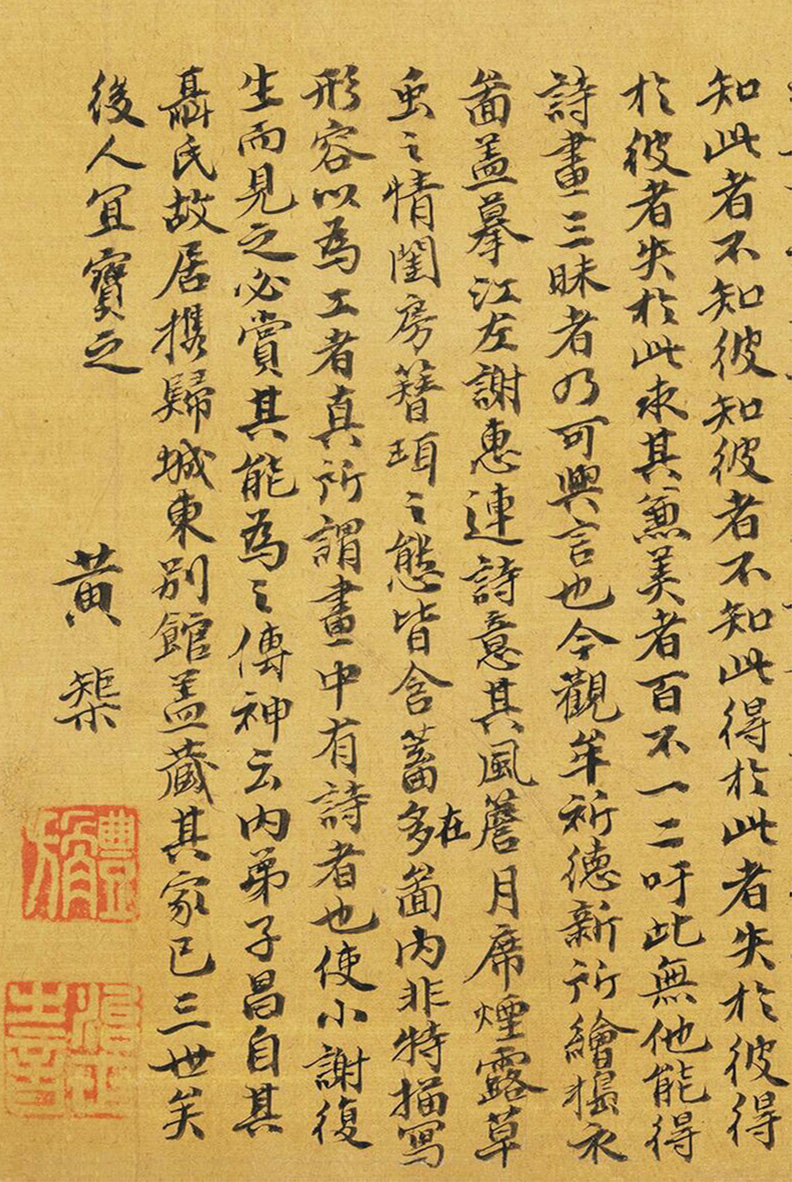 知此者不知彼知彼者不知此得於此者失於彼得
於彼者失於此求其兼美者百不一二吁此無他能得
詩畫三昧者乃可與言也今觀牟祈德新所繪擣衣
啚盖摹江左謝惠連詩意其風簷月席煙露草
虫之情閨房簪珥之態皆含蓄多在啚内非特描寫
形容以為工者真所謂畫中有詩者也使小謝復
生而見之必賞其能為之傳神云内弟子昌自其
聶氏故居携歸城東别館盖藏其家已三世矣
後人宜寶之
黄榘